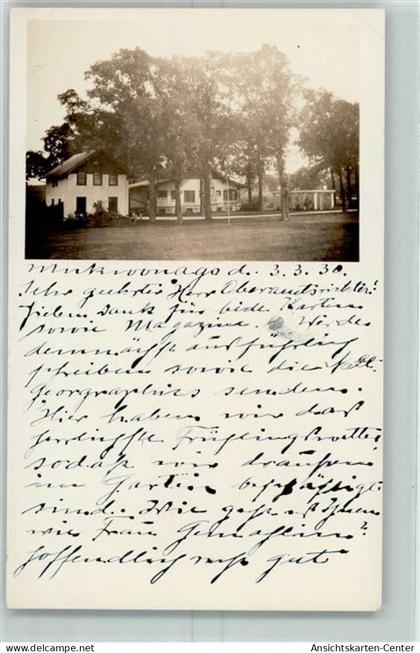 Mukwonago d. 3.3.30.
Sehr geehrter Herr Oberamtsrichter!
Lieben Dank für beide Karten
sowie Magazine. Werde
demnächst ausführlich
schreiben sowie die Nat.
georgraphics senden.
Hier haben wir das
herrlichste Frühlingswetter
sodaß wir draußen
im Garten beschäftigt
sind. Wie geht es Ihnen
wie Frau Gemahlin?
hoffendlich recht gut
Ansichtskarten-Center